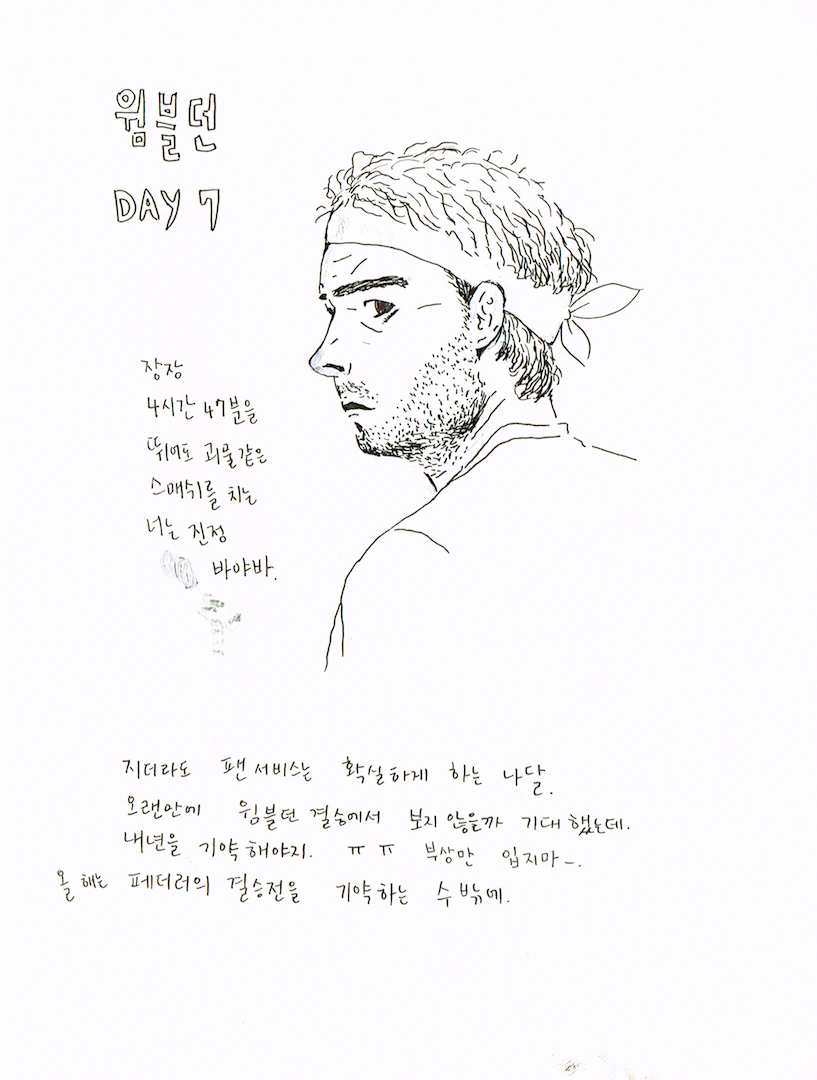 윔블던
DAY 7
장장
4시간 47분을
뛰어도 괴물같은
스매쉬를 치는
너는 진정
바야바.
지더라도 팬서비스는 확실하게 하는 나달.
오랜만에 윔블던 결승에서 보지 않을까 기대했는데.
내년을 기약해야지. ㅠㅠ 부상만 입지마~.
올해는 페더러의 결승전을 기약하는 수 밖에.